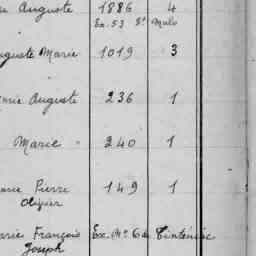 Auguste 1886 4
Ex. 53 St Malo
Auguste Marie 1019 3
Marie Auguste 236 1
Marie 240 1
Marie Pierre 149 1
Olivier
Marie François Ex. No 6 de Tinténiac
Joseph